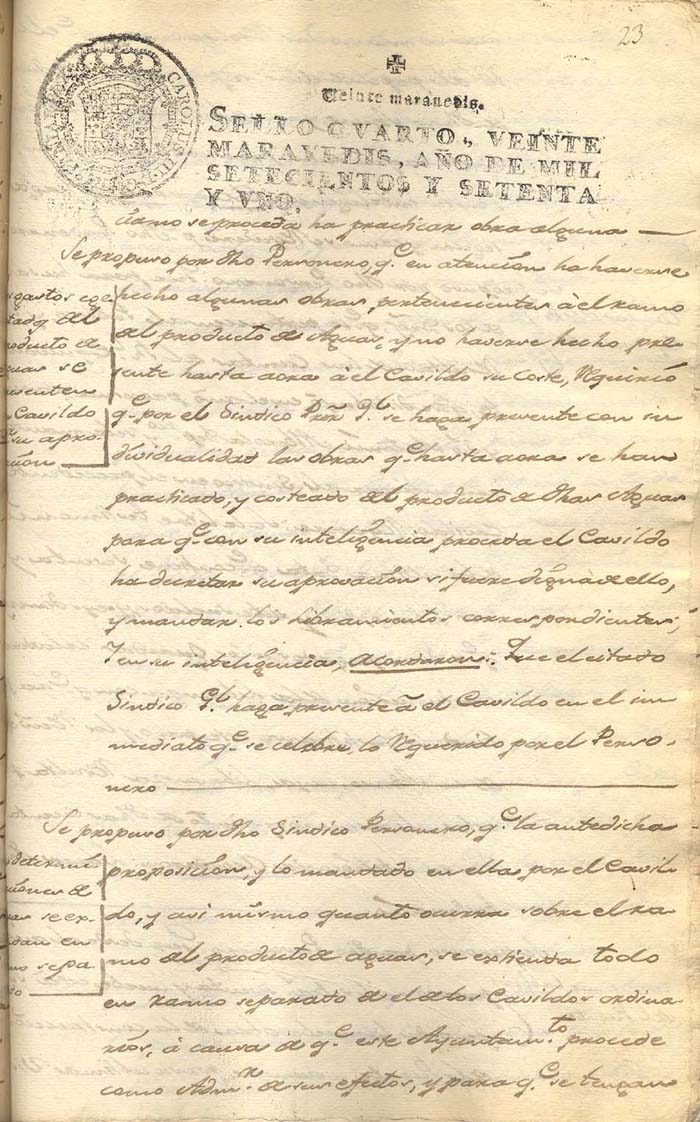 23
Veinte maravedis.
SELLO QVARTO, VEINTE
MARAVEDIS, AÑO DE MIL
SETECIENTOS Y SETENTA
Y VNO.
se proceda ha practicar obra alguna
Se propuso por dho Personero, q.e en atencion ha haverse
hecho algunas obras, pertenecientes à el ramo
del producto de Aguas, y no haverse hecho pre-
sente hasta aora à el Cavildo su coste, Requirió
q.e por el Sindico Pror. G.l se haga presente con in
dividualidad las obras q.e hasta aora se han
practicado, y costeado del producto de dhas Aguas
para q.e con su inteligencia proceda el Cavildo
ha decretar su aprovacion si fuere digna de ello,
y mandar los Libramientos correspondientes;
Y en su inteligencia, Acordaron: Que el citado
Sindico G.l haga presente à el Cavildo en el in
mediato q.e se celebre, lo Requerido por el Perso-
nero
gastos cos
tados del
producto de
aguas se
presenten
Cavildo
su apro-
cion
Se propuso por dho Sindico Personero, q.e la antedicha
proposicion, y lo mandado en ella por el Cavil-
do, y asi mismo quanto ocurra sobre el ra-
mo del producto de aguas, se extienda todo
en ramo separado de el de los Cavildos ordina-
rios, à causa de q.e este Ayuntam.to procede
como Adm.r de sus efectos, y para q.e se tengan
determi
ciones de
aguas se ex-
tiendan en
ramo sepa
rado